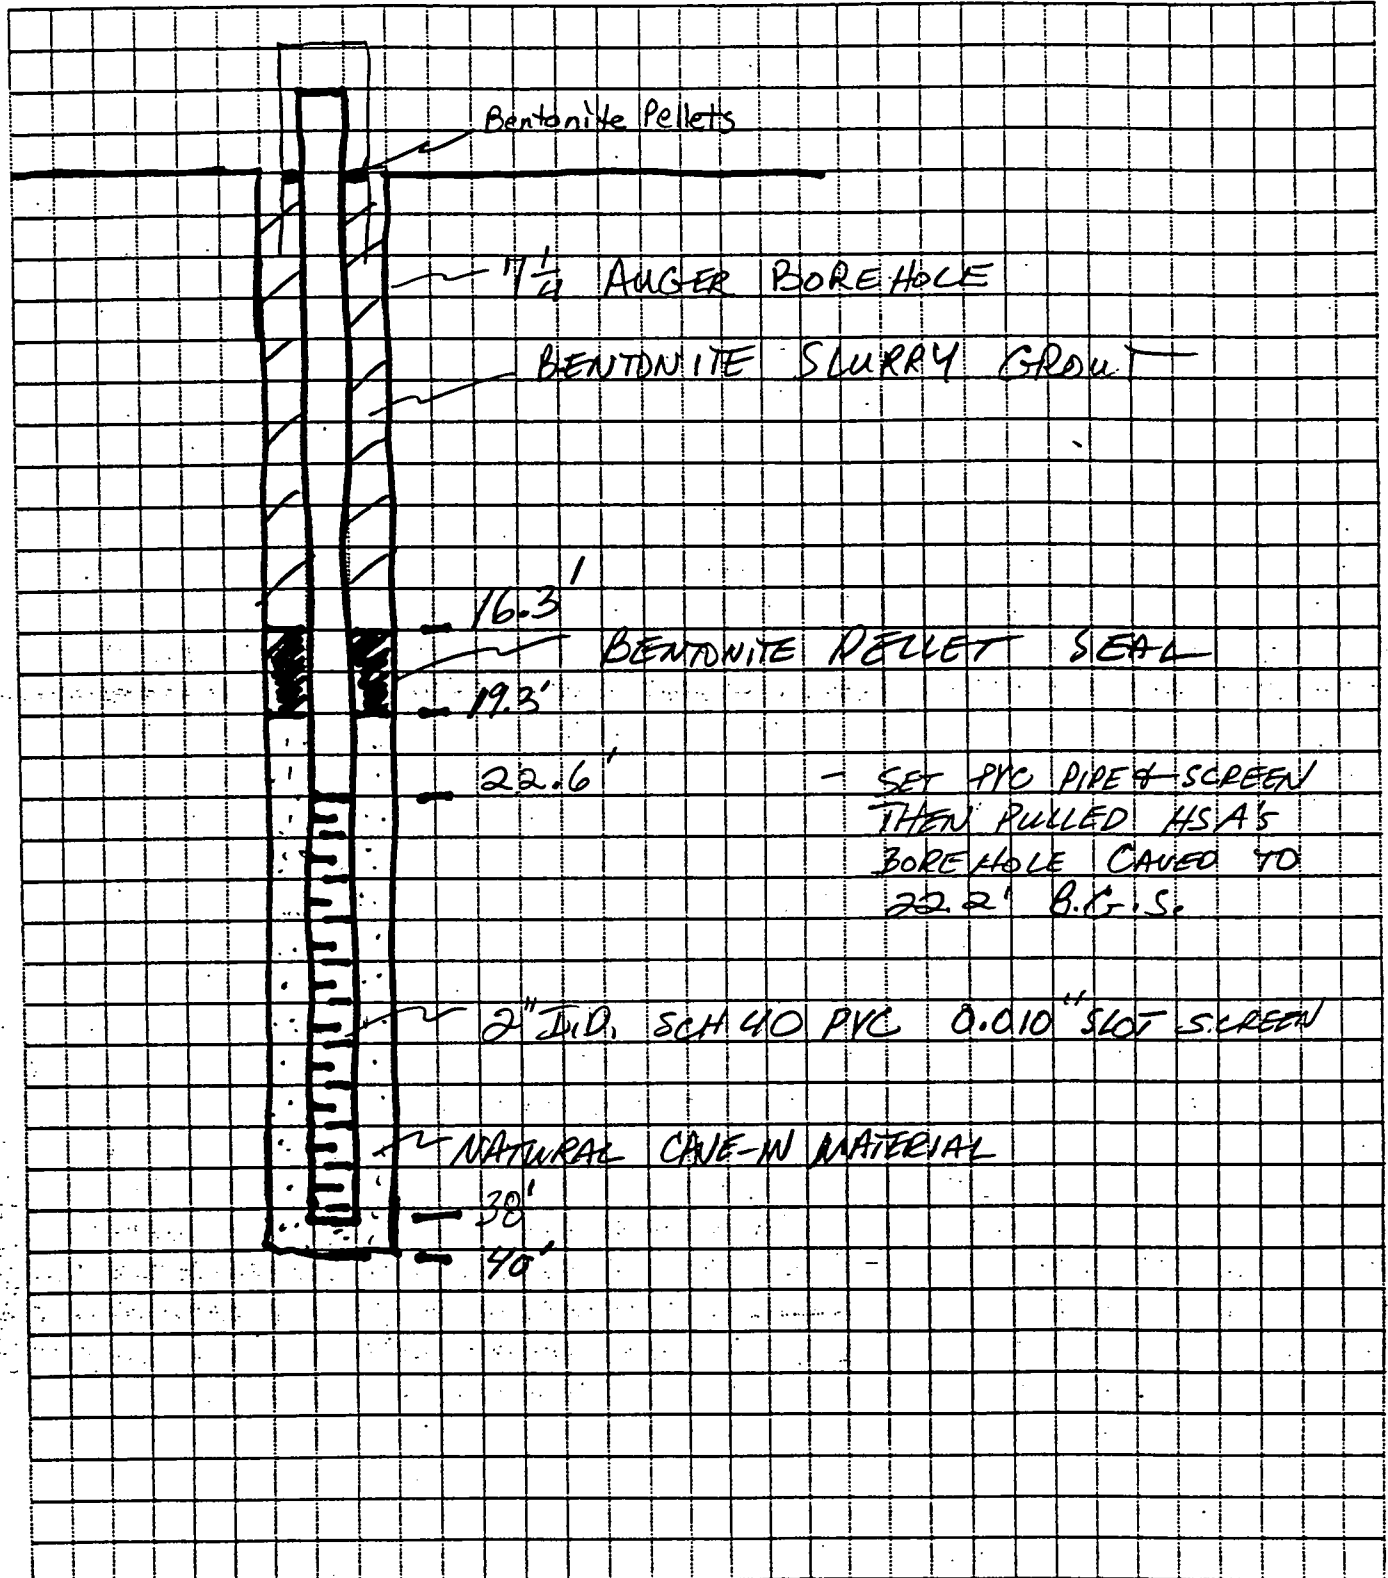 Bentonite Pellets
7 1/4 AUGER BOREHOLE
BENTONITE SLURRY GROUT
16.3'
BENTONITE PELLET SEAL
19.3'
22.6'
- SET PVC PIPE & SCREEN
THEN PULLED HSA'S
BOREHOLE CAVED TO
22.2' B.G.S.
2" I.D. SCH 40 PVC 0.010" SLOT SCREEN
NATURAL CAVE-IN MATERIAL
38'
40'